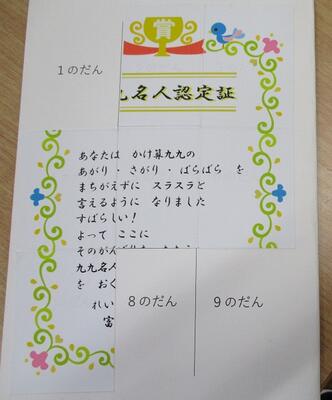 賞
1のだん
九名人認定証
あなたは かけ算九九の
あがり・さがり・ばらばら を
まちがえずに スラスラと
言えるように なりました
すばらしい！
よって ここに
そのがんばり
九九名人
を おく
8のだん
9のだん
れい
富